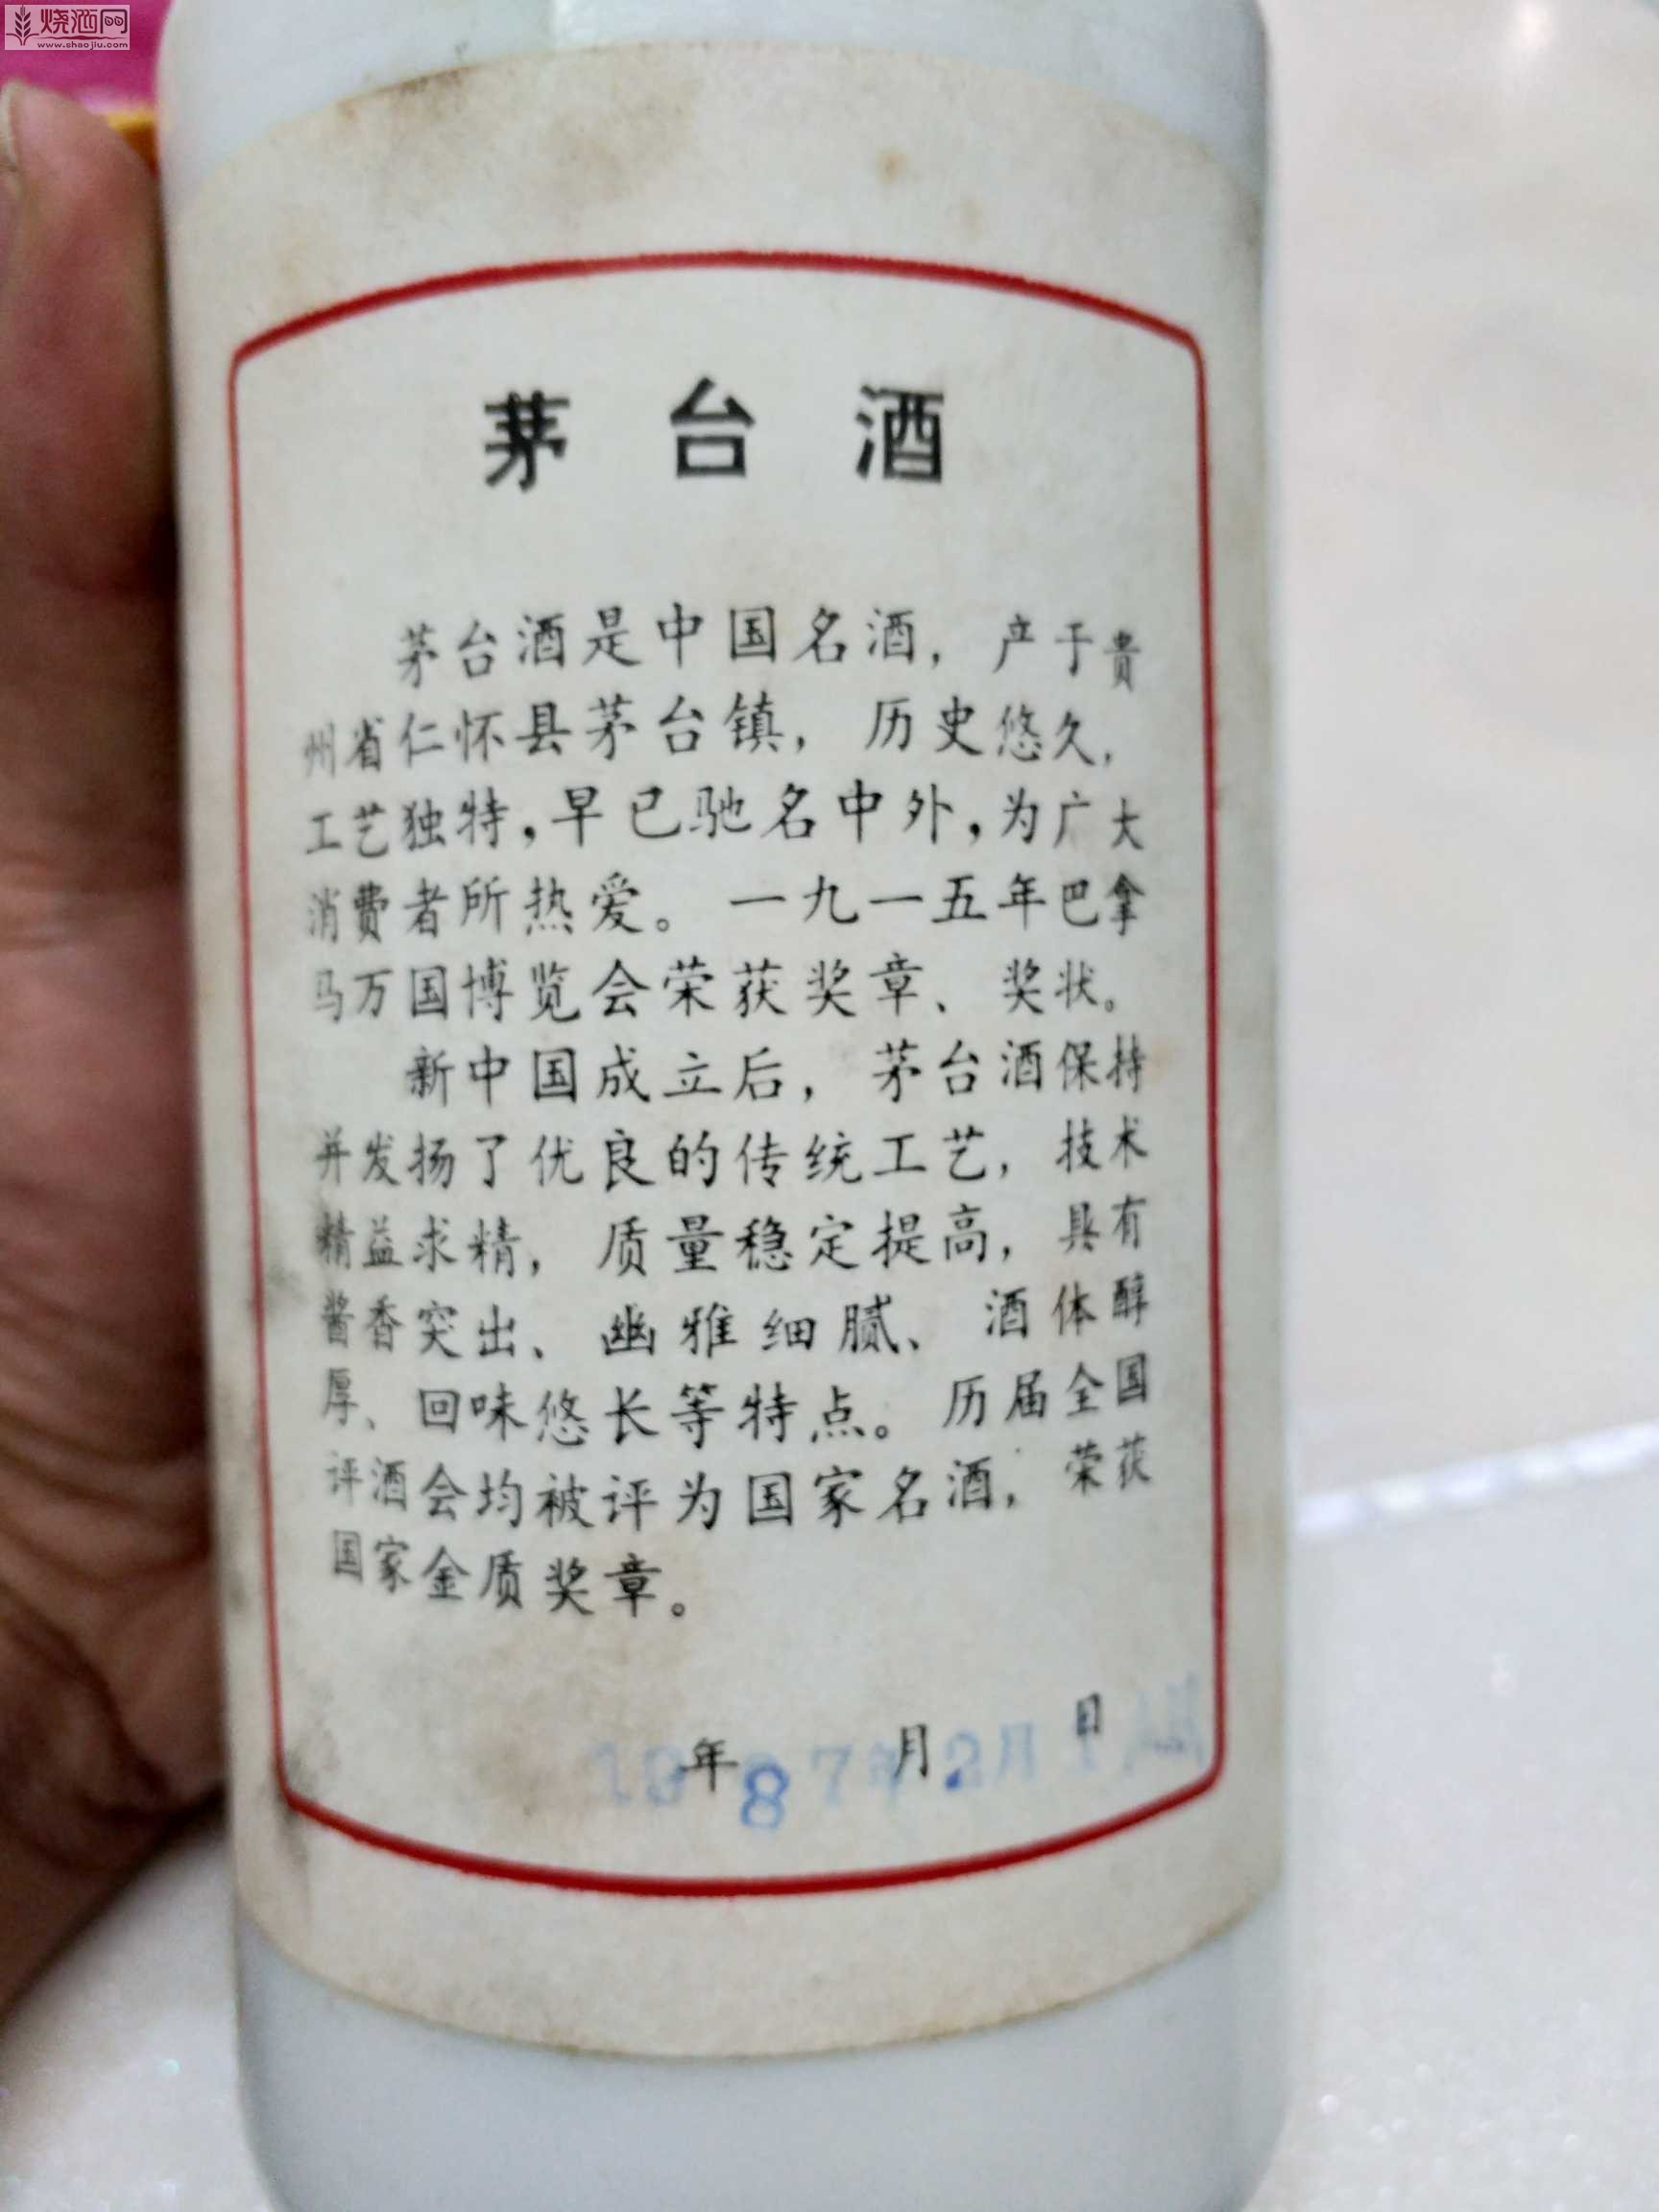 烧酒网
www.shaojiu.com
茅台酒
茅台酒是中国名酒，产于贵
州省仁怀县茅台镇，历史悠久，
工艺独特，早已驰名中外，为广大
消费者所热爱。一九一五年巴拿
马万国博览会荣获奖章、奖状。
新中国成立后，茅台酒保持
并发扬了优良的传统工艺，技术
精益求精，质量稳定提高，具有
酱香突出、幽雅细腻、酒体醇
厚、回味悠长等特点。历届全国
评酒会均被评为国家名酒，荣获
国家金质奖章。
年 月 日
1987年2月